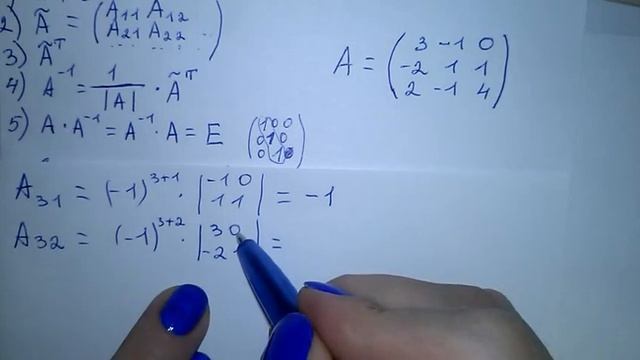 2) Ã = (A₁₁ A₁₂
A₂₁ A₂₂
... ...)
3) Ãᵀ
4) A⁻¹ = 1/|A| · Ãᵀ
5) A · A⁻¹ = A⁻¹ · A = E (1 0 0
0 1 0
0 1 0)
A = (3 -1 0
-2 1 1
2 -1 4)
A₃₁ = (-1)³⁺¹ · |-1 0
1 1| = -1
A₃₂ = (-1)³⁺² · |3 0
-2 1| =